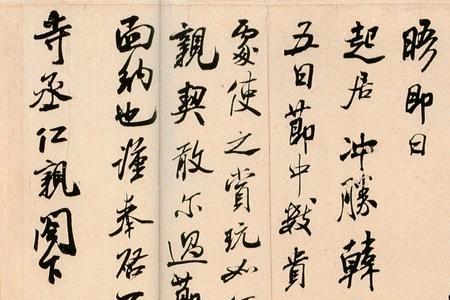 晤即日
起居冲勝韓
五日節中數貴
處使之賞玩如
親契敢尔過節
面納也謹奉啓不
寺丞仁親閣下